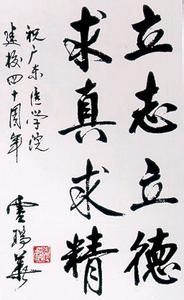 立志立德
求真求精
祝广东医学院
建校四十周年
云瑞义